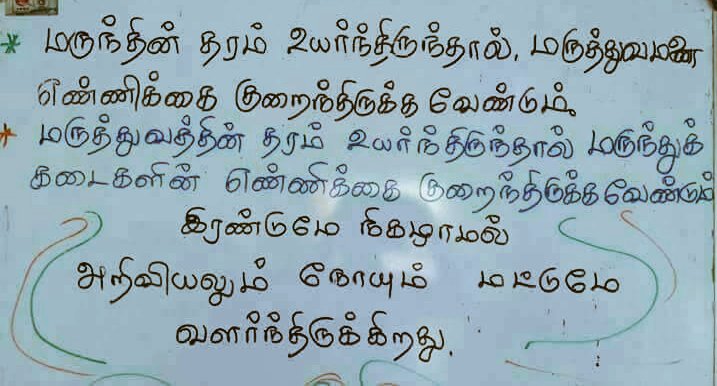 * மருந்தின் தரம் உயர்ந்திருந்தால், மருத்துவமனை
எண்ணிக்கை குறைந்திருக்க வேண்டும்.
* மருத்துவத்தின் தரம் உயர்ந்திருந்தால் மருந்துக்
கடைகளின் எண்ணிக்கை குறைந்திருக்க வேண்டும்
இரண்டுமே நிகழாமல்
அறிவியலும் நோயும் மட்டுமே
வளர்ந்திருக்கிறது.